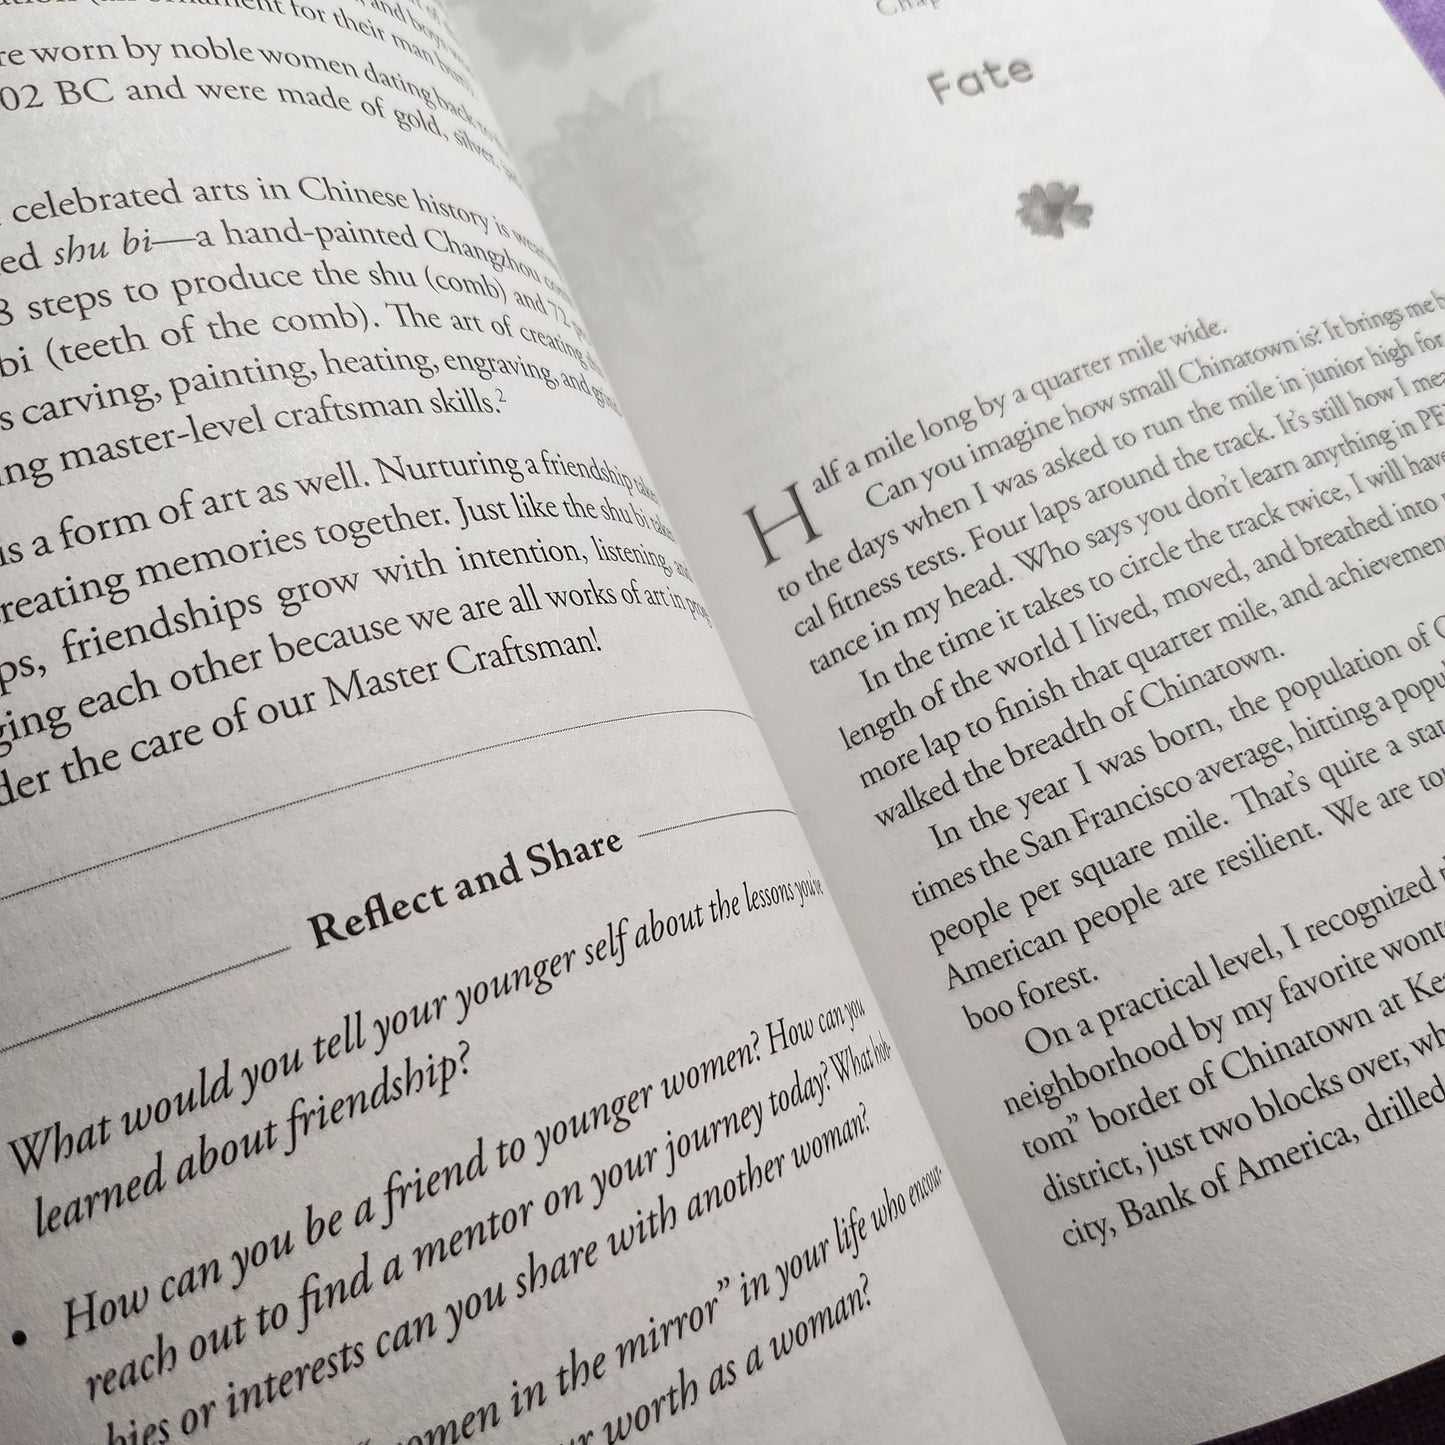 for their man bun)
worn by noble women dating back to
02 BC and were made of gold, silver,
celebrated arts in Chinese history is
shu bi—a hand-painted Changzhou
steps to produce the shu (comb) and 72
bi (teeth of the comb). The art of creating
carving, painting, heating, engraving, and
master-level craftsman skills.2
is a form of art as well. Nurturing a friendship
memories together. Just like the shu bi
friendships grow with intention, listening,
each other because we are all works of art in
the care of our Master Craftsman!
Reflect and Share
What would you tell your younger self about the lessons you've
learned about friendship?
• How can you be a friend to younger women? How can you
reach out to find a mentor on your journey today? What hob-
bies or interests can you share with another woman?
in the mirror” in your life who encour-
worth as a woman?
Fate
Half a mile long by a quarter mile wide.
Can you imagine how small Chinatown is? It brings me
to the days when I was asked to run the mile in junior high for
cal fitness tests. Four laps around the track. It's still how I
tance in my head. Who says you don't learn anything in PE?
In the time it takes to circle the track twice, I will have
length of the world I lived, moved, and breathed into
more lap to finish that quarter mile, and
walked the breadth of Chinatown.
In the year I was born, the population of
times the San Francisco average, hitting a
people per square mile. That's quite a
American people are resilient. We are
boo forest.
On a practical level, I recognized
neighborhood by my favorite
tom” border of Chinatown at
district, just two blocks over,
city, Bank of America, drilled